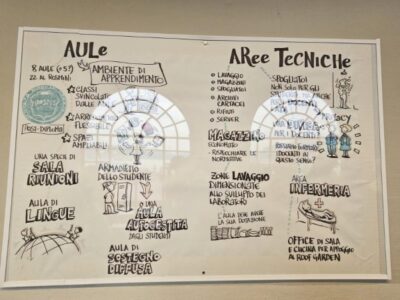 AULe
8 AULE (o 5?)
22 AL ROSMINI
AMBIENTE DI
APPRENDIMENTO
CLASSI
SVINCOLATE
DALLE AULE
ARREDI
FLESSIBILI
SPAZI
AMPLIABILI
POST-DIPLOMA
UNA SPECIE DI
SALA
RIUNIONI
AULA DI
LINGUE
ARMADIETTO
DELLO STUDENTE
O UNA
AULA
AUTOGESTITA
DAGLI STUDENTI
AULA DI
SOSTEGNO
DIFFUSA
ARee TecNicHe
LAVAGGIO
MAGAZZINO
SPOGLIATOI
ARCHIVI
CARTACEI
RIFIUTI
SERVER
MAGAZZINO
ECONOMATO
RISTUDIARE
LE NORMATIVE
ZONE LAVAGGIO
DIMENSIONATE
ALLO SVILUPPO DEI
LABORATORI
L'AULA DEVE AVERE
LA SUA DOTAZIONE
SPOGLIATOI
NON SOLO PER GLI
ANCHE
PRIVACY
UNA DIVISA
PER I
DOCENTI?
I DOCENTI IN
QUESTO SENSO?
AREA
INFERMERIA
OFFICE DI SALA
E CUCINA PER APPOGGIO
AL ROOF GARDEN